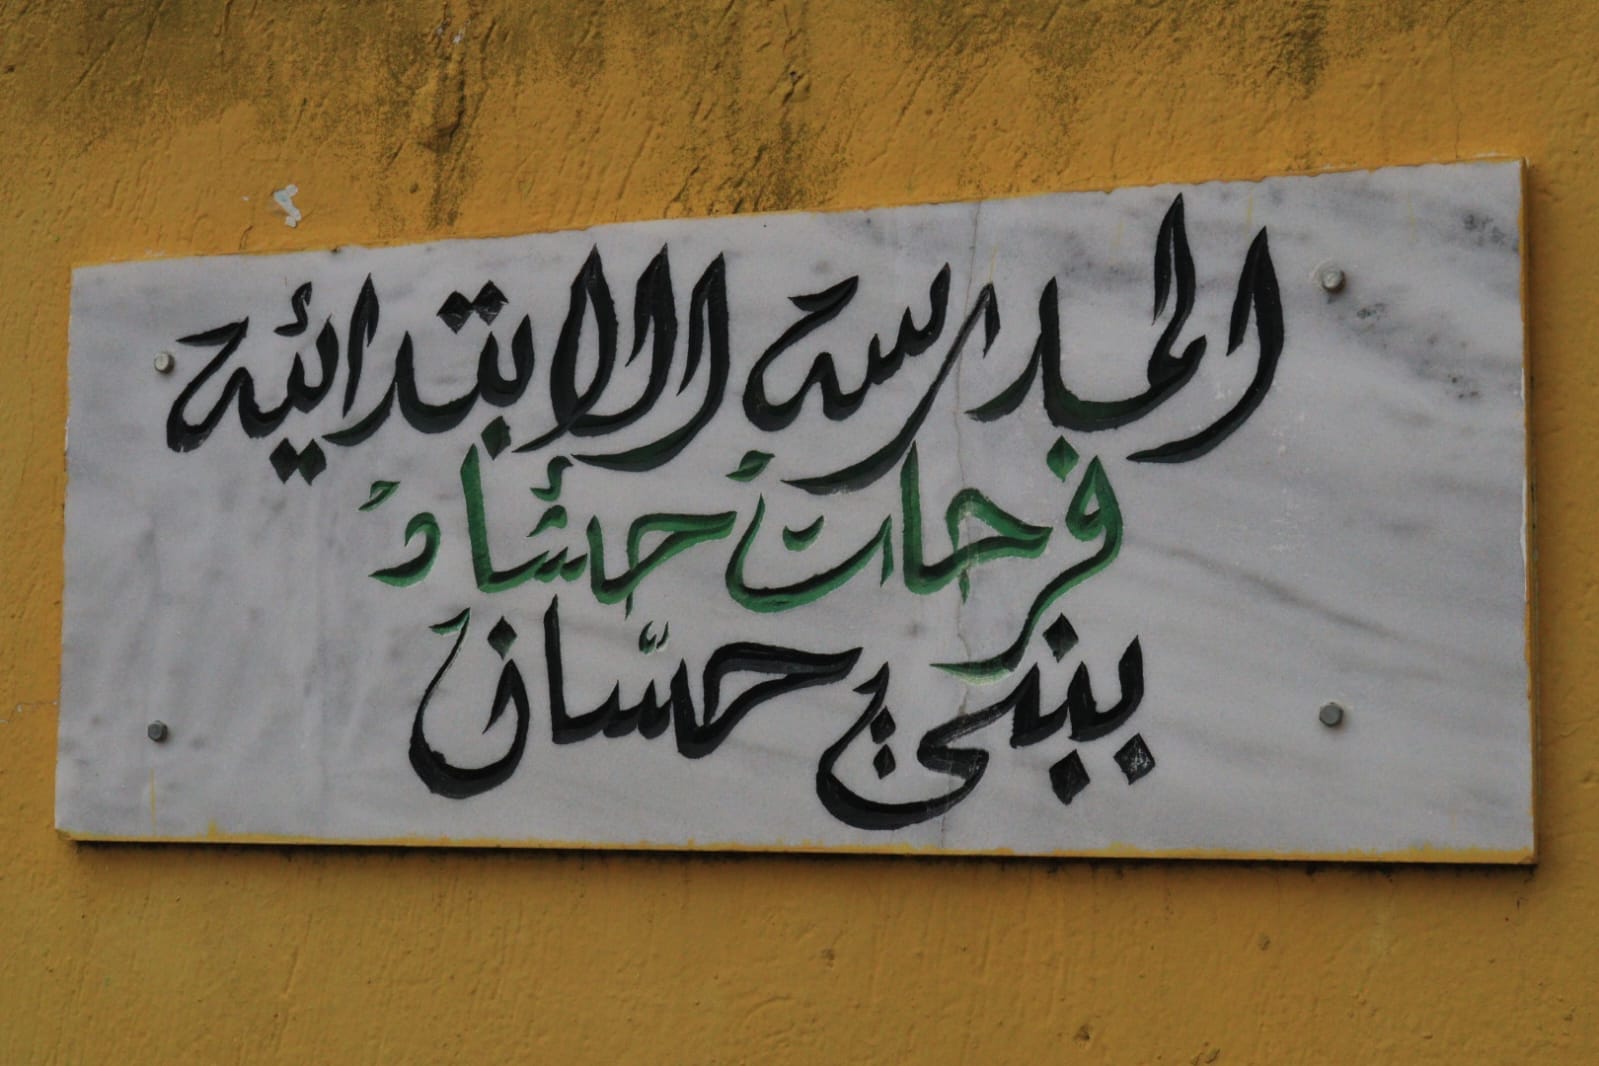 المدرسة الابتدائية
فرحات حشاد
ببني حسّان